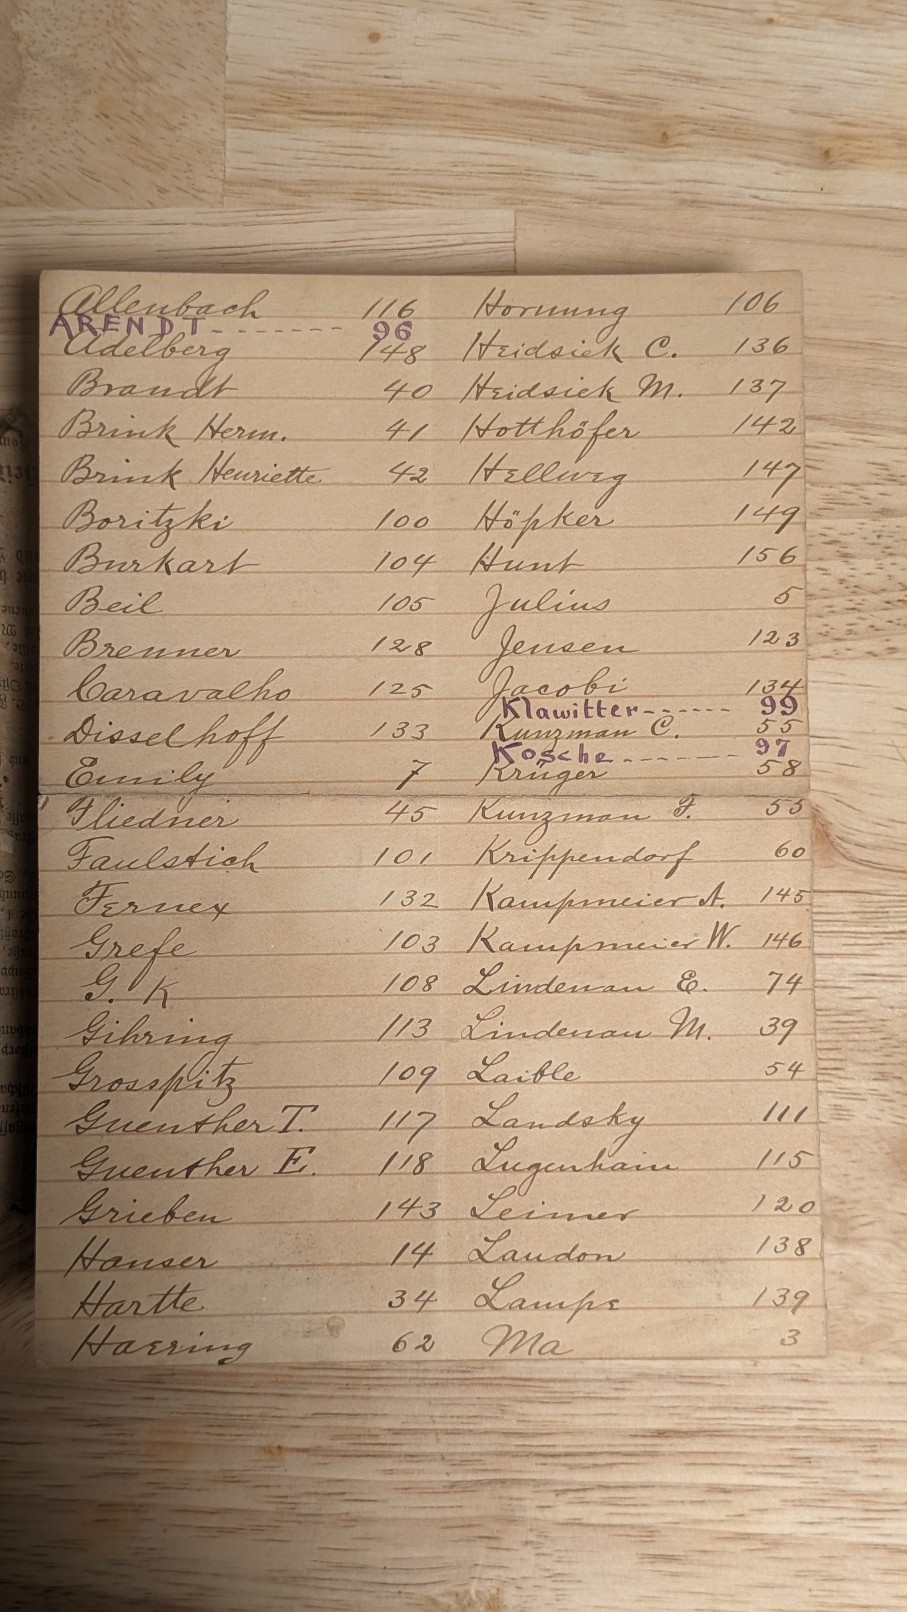 Allenbach 116
ARENDT-------- 96
Adelberg 148
Brandt 40
Brink Herm. 41
Brink Henriette 42
Boritzki 100
Burkart 104
Beil 105
Brenner 128
Caravalho 125
Disselhoff 133
Emily 7
Fliedner 45
Faulstich 101
Fernex 132
Grefe 103
G. K 108
Gihring 113
Grosspitz 109
Guenther T. 117
Guenther E. 118
Grieben 143
Hanser 14
Hartte 34
Haering 62
Hornung 106
Heidsiek C. 136
Heidsiek M. 137
Hotthöfer 142
Hellweg 147
Höpker 149
Hunt 156
Julius 5
Jensen 123
Jacobi 134
Klawitter------ 99
Kunzman C. 55
Kosche------- 97
Krüger 58
Kunzman F. 55
Krippendorf 60
Kampmeier A. 145
Kampmeier W. 146
Lindenau E. 74
Lindenau M. 39
Laible 54
Landsky 111
Lugenhain 115
Leimer 120
Laudon 138
Lampe 139
Ma 3